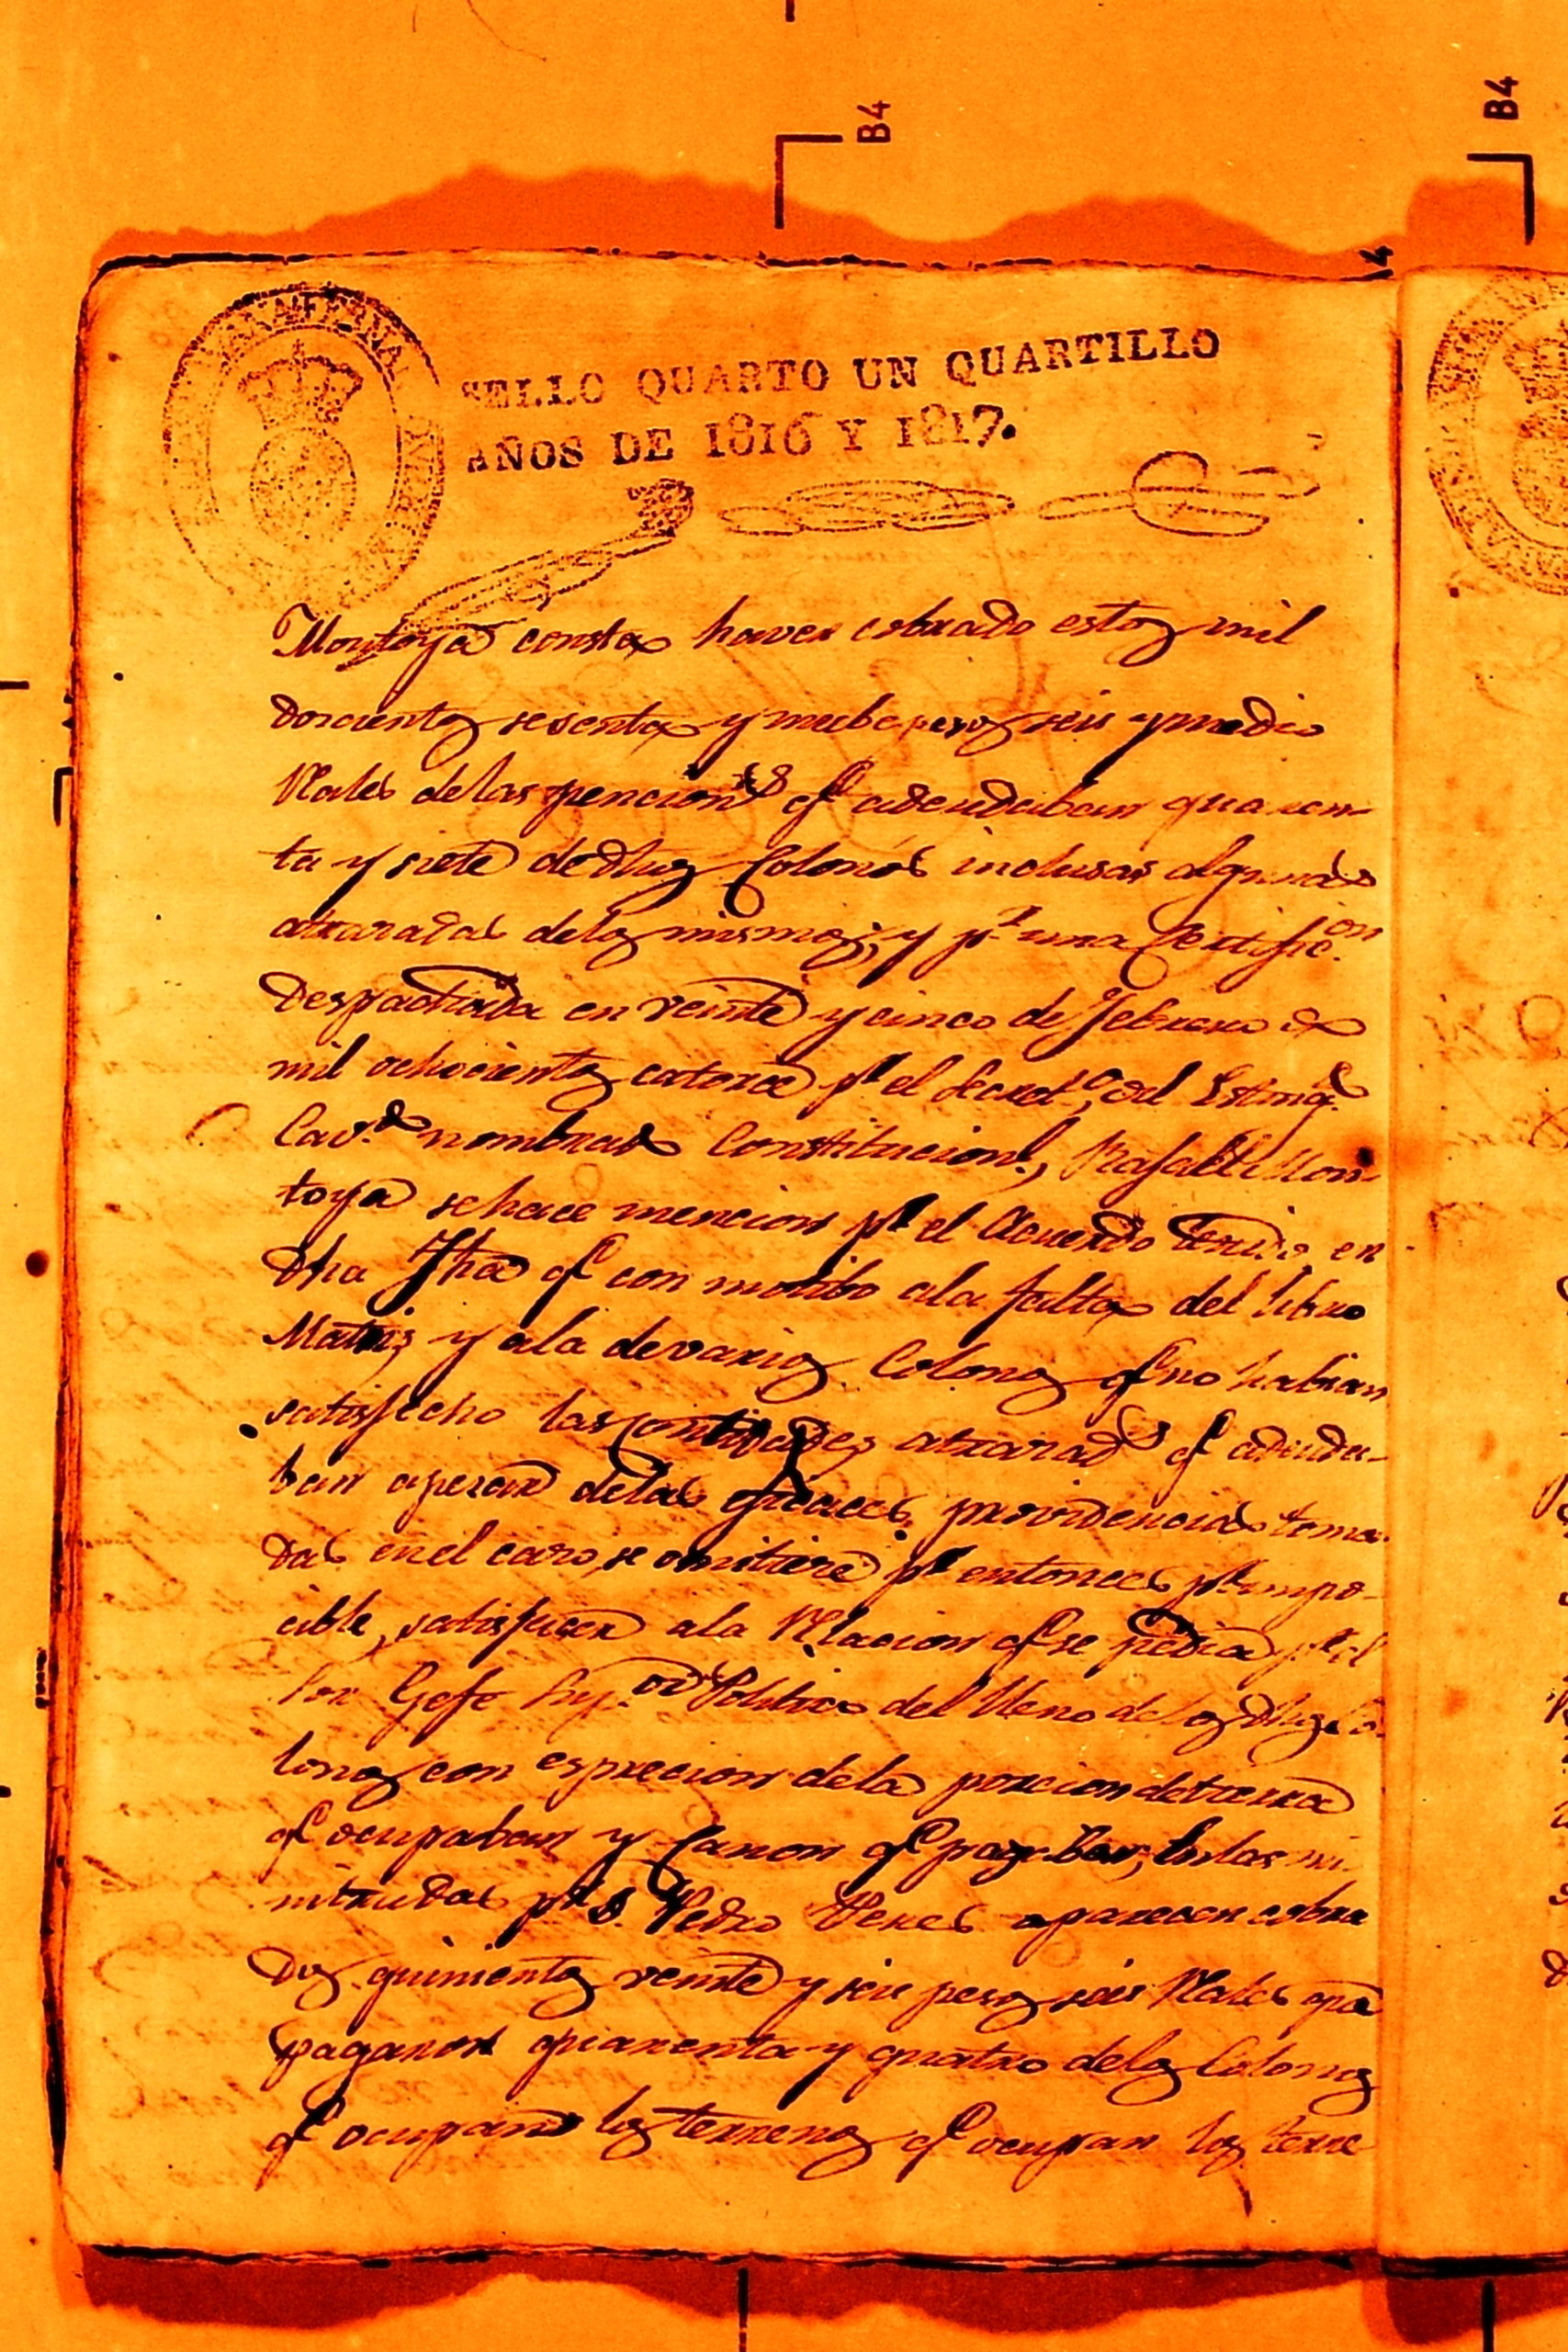 B4
B4
4
SELLO QUARTO UN QUARTILLO
AÑOS DE 1816 Y 1817.
Montoya consta haver cobrado estos mil
dorcientos sesenta y nuebe pesos seis y medio
Rales delas pencion.s q.e adeudaban quaren-
ta y siete de dhos Colonos inclusas algunas
atrasadas delos mismos; y p.r una Certific.on
despachada en veinte y cinco de Febrero de
mil ochocientos catorce p.r el Secret.o del Esting.e
Cav.do nombrado Constitucion.l, Rafael Mon-
toya se hace mencion p.r el Acuerdo tenido en
dha Fha q.e con motibo ala falta del libro
Matriz y ala devarios Colonos q.e no habian
satisfecho las cantidades atrasad.s q.e adeuda-
ban apesar delas eficaces providencias toma-
das en el caso, se omitiere p.r entonces p.r impo-
cible, satisfacer ala Relacion q.e se pedia p.r el
Sor Gefe Sup.or Politico del Reno delos dhos Co-
lonos con esprecion dela porcion detierra
q.e ocupaban y Canon q.e pagaban; En las mi-
nitradas p.r D. Pedro Peres aparecen cobra
dos quinientos veinte y seis pesos seis Rales que
pagaron quarenta y quatro delos Colonos
q.e ocupan los terrenos q.e ocupan los terre